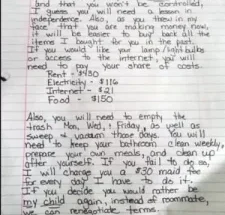 and that you won't be controlled,
I guess you will need a lesson in
independence. Also, as you threw in my
face that you are making money now,
it will be easier to buy back all the
items I bought for you in the past.
If you would like your lamp/lightbulbs
or access to the internet, you will
need to pay your share of costs.
Rent - $430
Electricity - $116
Internet - $21
Food - $150
Also, you will need to empty the
trash Mon, Wed, Friday, as well as
sweep & vacuum those days. You will
need to keep your bathroom clean weekly,
prepare your own meals, and clean up
after yourself. If you fail to do so,
I will charge you a $30 maid fee
for every day I have to do it.
If you decide you would rather be
my child again, instead of roommate,
we can renegotiate terms.